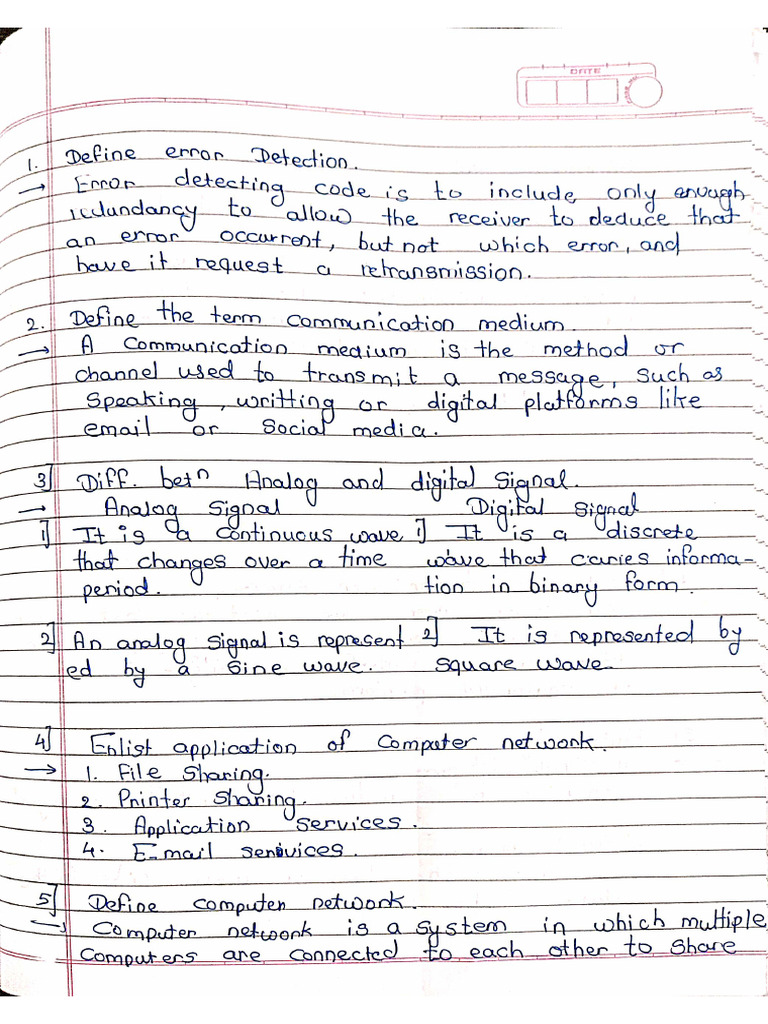 DATE
1. Define error Detection.
→ Error detecting code is to include only enough
redundancy to allow the receiver to deduce that
an error occurrent, but not which error, and
have it request a retransmission.
2. Define the term communication medium.
→ A communication medium is the method or
channel used to transmit a message, such as
speaking, writting or digital platforms like
email or social media.
3] Diff. betn Analog and digital signal.
→ Analog Signal Digital Signal
1] It is a continuous wave 1] It is a discrete
that changes over a time wave that caries informa-
period. tion in binary form.
2] An analog signal is represent 2] It is represented by
ed by a sine wave. square wave.
4] Enlist application of computer network.
→ 1. File sharing.
2. Printer sharing.
3. Application services.
4. E-mail services.
5] Define computer network.
→ Computer network is a system in which multiple
computers are connected to each other to share